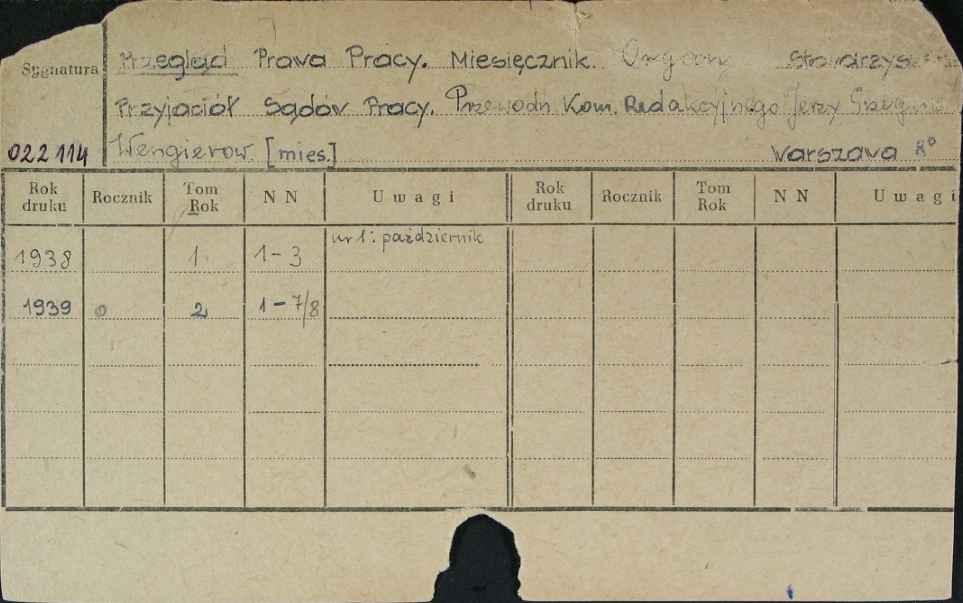 Sygnatura Przegląd Prawa Pracy. Miesięcznik. Organ Stowarzysz
Przyjaciół Sądów Pracy. Przewodn. Kom. Redakcyjnego Jerzy
022114 Wengierow. [mies.] Warszawa 8°
Rok druku Rocznik Tom Rok N N Uwagi Rok druku Rocznik Tom Rok N N Uwagi
nr 1: październik
1938 1 1-3
1939 0 2 1-7/8